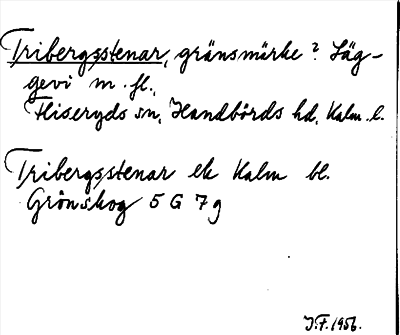 Tribergsstenar, gränsmärke? Läg-
gevi m. fl.,
Fliseryds sn, Handbörds hd, Kalm. l.
Tribergsstenar ek Kalm bl.
Grönskog 5 G 7 g
J.F. 1956.